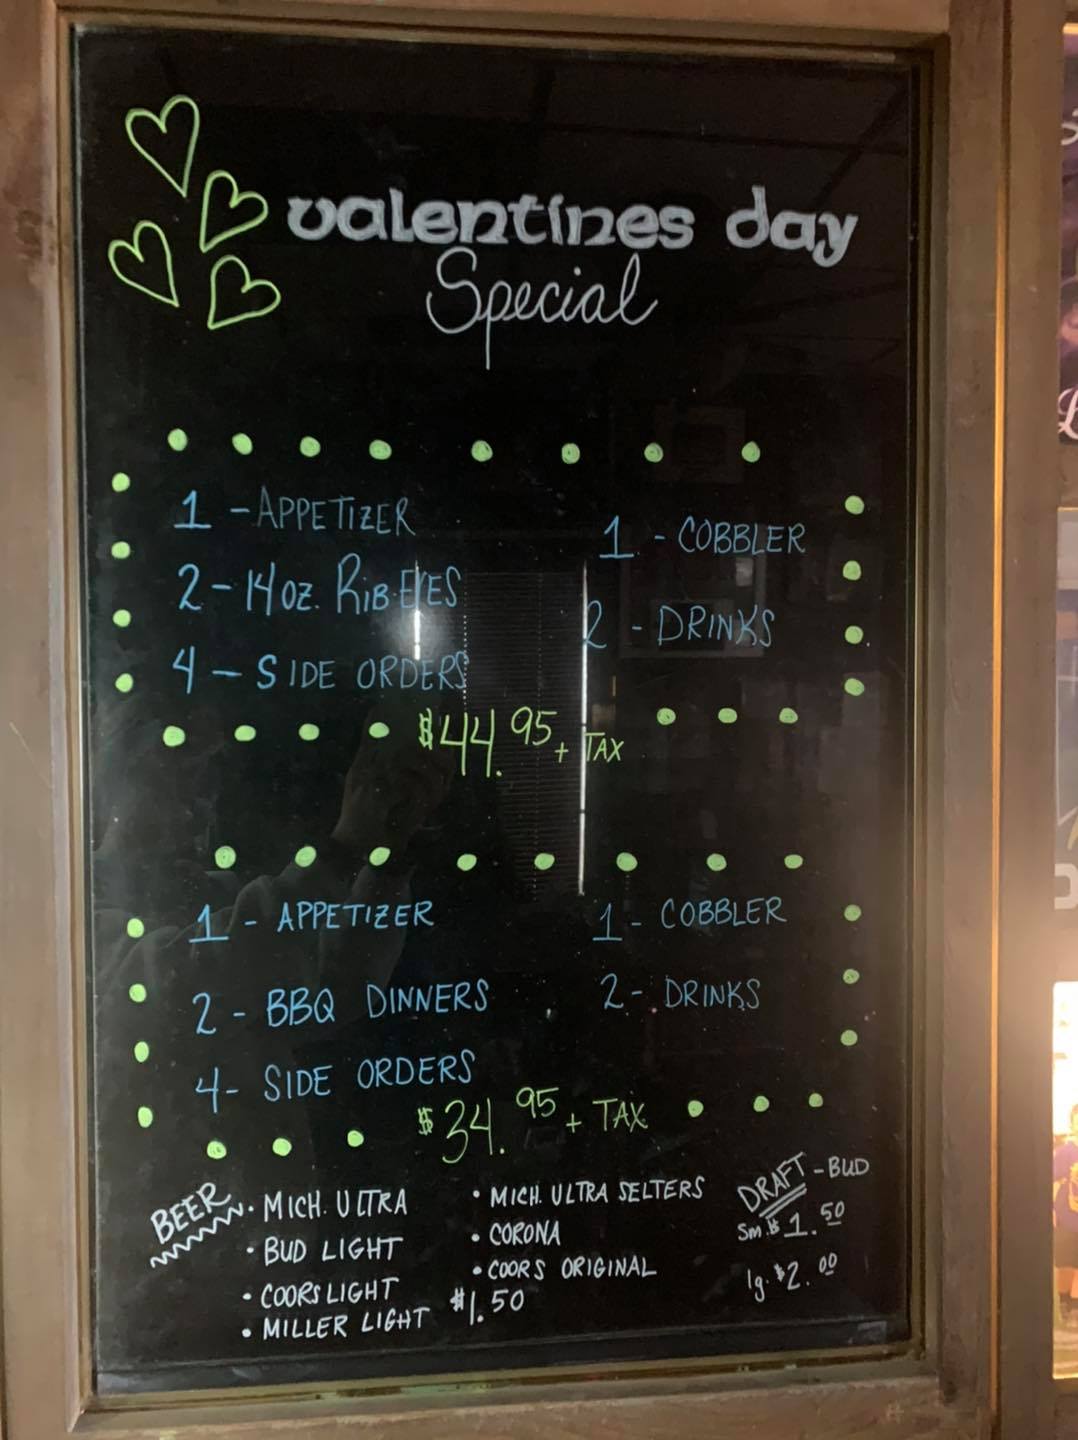 valentines day
Special
1 - APPETIZER
2 - 14 oz. RIB-EYES
4 - SIDE ORDERS
1 - COBBLER
2 - DRINKS
$44.95 + TAX
1 - APPETIZER
2 - BBQ DINNERS
4 - SIDE ORDERS
1 - COBBLER
2 - DRINKS
$34.95 + TAX
BEER
• MICH. ULTRA
• BUD LIGHT
• COORS LIGHT
• MILLER LIGHT
• MICH. ULTRA SELTERS
• CORONA
• COORS ORIGINAL
$1.50
DRAFT - BUD
Sm. $1.50
lg. $2.00